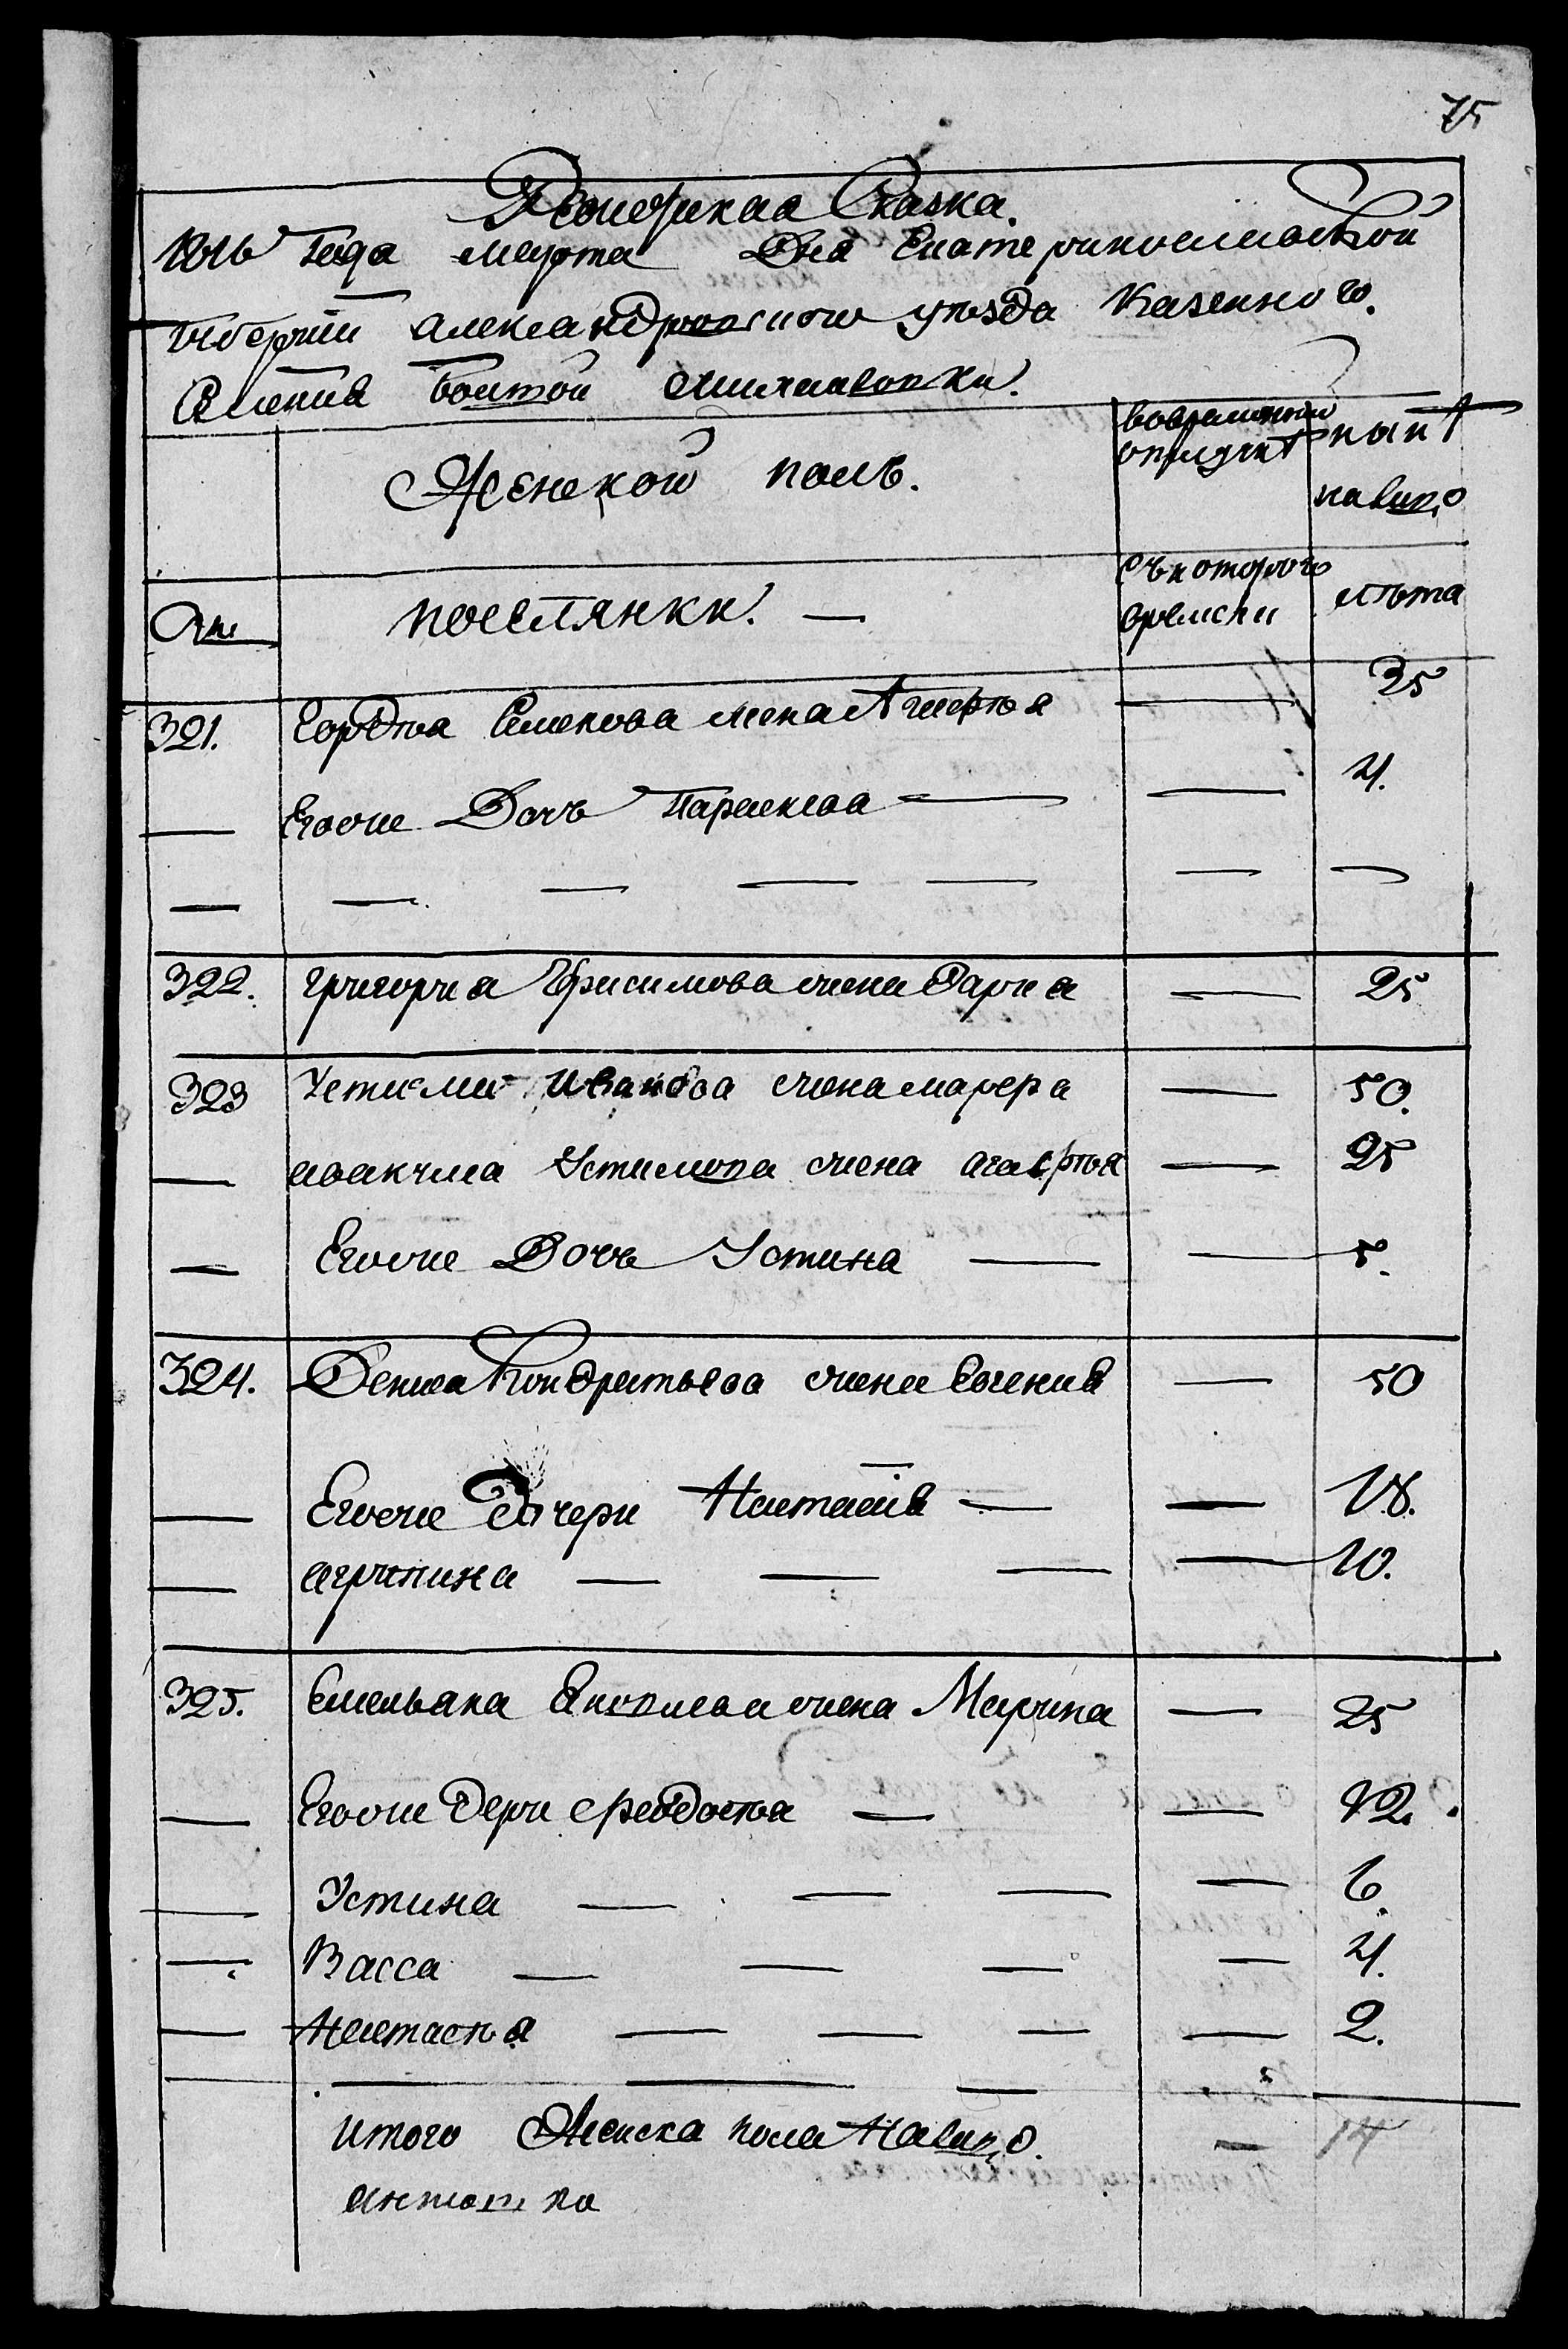 75
Ревизская Сказка.
1816 года марта Дня Екатеринославской
губернии Александровского уезда Казенного
Селения Большой Михайловки.
Женской полъ.
вовременной отлучкѣ
ныне налицо
поселянки. —
съ которого времени
лѣта
321. Гордѣя Семенова жена Агафья — 35
— Егоже Дочь Параскева — — 4.
— — — — — — —
322. Григория Анисимова жена Дария — 25
323 Устима Иванова жена марфа — 50.
— авакума Устимова жена агафья — 25
— Егоже Дочь Устина — — 5.
324. Дениса Кондратьева жена Евгения — 50
— Егоже Дочери Настасия — — 18.
— агрипина — — — — 10.
325. Емельяна Яковлева жена Марина — 25
— Егоже Дочери Феодосья — — 12.
— Устина — — — — 6.
— Васса — — — — 4.
— Настасья — — — — 2.
итого Женска пола Налицо. — 14